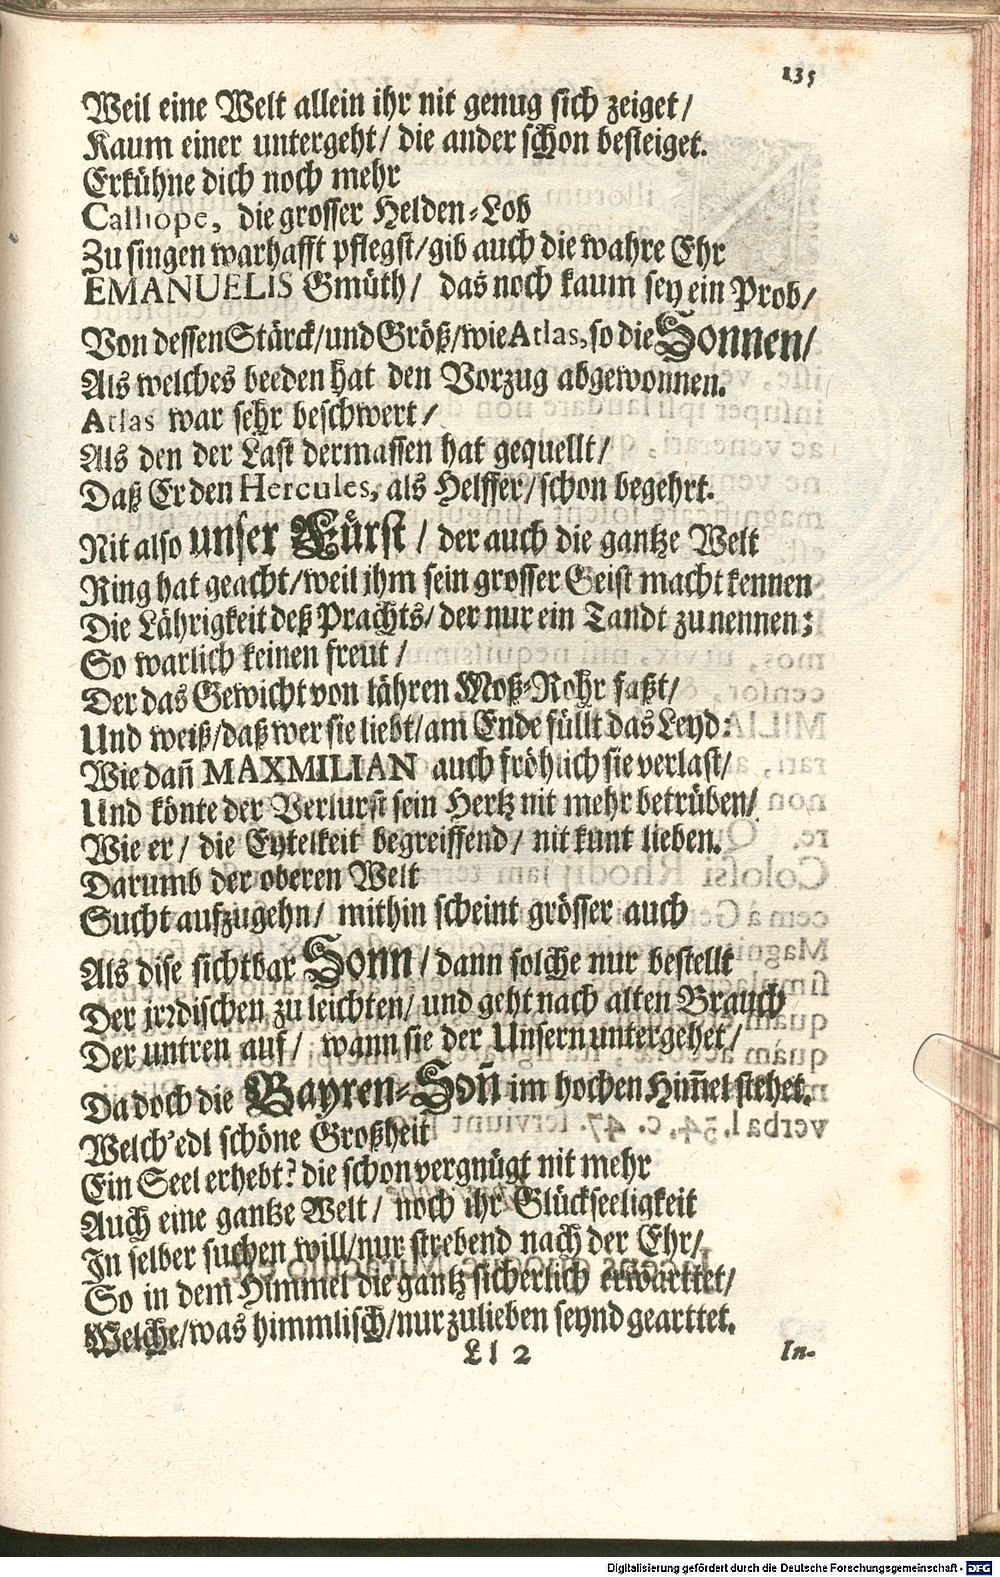 135
Weil eine Welt allein ihr nit genug sich zeiget/
Kaum einer untergeht/ die ander schon besteiget.
Erkühne dich noch mehr
Calliope, die grosser Helden-Lob
Zu singen warhafft pflegst/gib auch die wahre Ehr
EMANUELIS Gmüth/ das noch kaum sey ein Prob/
Von dessen Stärck/und Größ/wie Atlas, so die Sonnen/
Als welches beeden hat den Vorzug abgewonnen.
Atlas war sehr beschwert/
Als den der Last dermassen hat gequellt/
Daß Er den Hercules, als Helffer/schon begehrt.
Nit also unser Fürst/ der auch die gantze Welt
Ring hat geacht/weil ihm sein grosser Geist macht kennen
Die Lährigkeit deß Prachts/ der nur ein Tandt zu nennen;
So warlich keinen freut/
Der das Gewicht von lähren Moß-Rohr faßt/
Und weiß/daß wer sie liebt/am Ende füllt das Leyd:
Wie dañ MAXMILIAN auch fröhlich sie verlast/
Und könte der Verlurst sein Hertz nit mehr betrüben/
Wie er/ die Eytelkeit begreiffend/ nit kunt lieben.
Darumb der oberen Welt
Sucht aufzugehn/ mithin scheint grösser auch
Als dise sichtbar Sonn/dann solche nur bestellt
Der irrdischen zu leichten/ und geht nach alten Brauch
Der untren auf/ wann sie der Unsern untergehet/
Da doch die Bayren-Soñ im hochen Him̃el stehet.
Welch'edl schöne Großheit
Ein Seel erhebt? die schon vergnügt nit mehr
Auch eine gantze Welt/ noch ihr Glückseeligkeit
In selber suchen will/nur strebend nach der Ehr/
So in dem Himmel die gantz sicherlich erwarttet/
Welche/was himmlisch/nur zulieben seynd gearttet.
Ll 2 In-
Digitalisierung gefördert durch die Deutsche Forschungsgemeinschaft - DFG